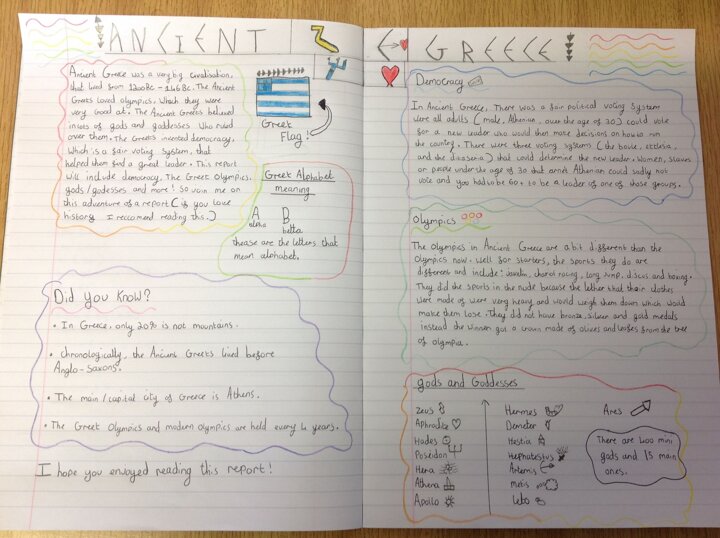 ANCIENT GREECE
Ancient Greece was a very big civalisation,
that lived from 1200BC - 146BC. The Ancient
Greeks loved olympics. Which they were
very good at. The Ancient Greeks believed
in lots of gods and goddesses who ruled
over them. The Greeks invented democracy,
Which is a fair voting system, that
helped them find a great leader. This report
will include democracy, The Greek Olympics,
gods/godesses and more! So Join me on
this adventure of a report (if you love
history I reccomend reading this.)
Greek
Flag!
Greek Alphabet
meaning
A B
alpha betta
thease are the letters that
mean alphabet.
Did you know?
• In Greece, only 20% is not mountains.
• chronologically, the Ancient Greeks lived before
Anglo-Saxons.
• The main/capital city of Greece is Athens.
• The Greek Olympics and modern Olympics are held every 4 years.
I hope you enjoyed reading this report!
Democracy
In Ancient Greece, There was a fair political voting System
were all adults (male, Athenian, over the age of 30) could vote
for a new leader who would then make decisions on how to run
the country. There were three voting systems (the boule, ecclesia,
and the dikasteria) that could determine the new leader. Women, slaves
or people under the age of 30 that arnet Athenian could sadly not
vote and you had to be 60+ to be a leader of one of those groups.
Olympics
The Olympics in Ancient Greece are a bit different than the
Olympics now. well for starters, the sports they do are
different and include: Javelin, chariot racing, long Jump, discus and boxing.
They did the sports in the nude because the lether that their clothes
were made of were very heavy and would weigh them down which would
make them lose. They did not have bronze, silver and gold medals
instead the winner got a crown made of olives and leafes from the tree
of olympia.
gods and Goddesses
Zeus
Aphrodite
Hades
Poseidon
Hera
Athena
Apollo
Hermes
Demeter
Hestia
Hephaestus
Artemis
metis
Leto
Ares
There are 400 mini
gods and 15 main
ones.